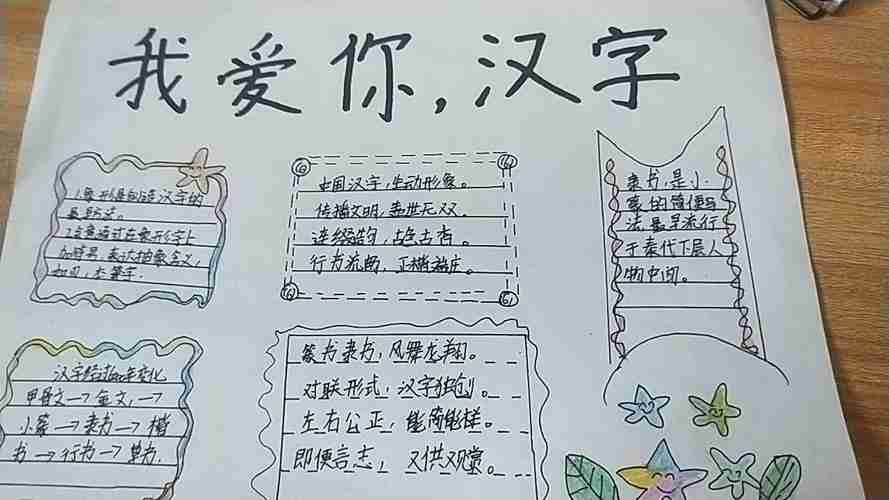 我爱你,汉字
1.象形是创造汉字的
基
2.
加符号,表达抽象含义,
如刃、本等字.
中国汉字,生动形象。
传播文明,盖世无双。
古色古香。
行书流畅,正楷端庄。
隶书,是小
篆的简便写
法最早流行
于秦代下层人
物中间。
汉字经过的年变化
甲骨文→金文,→
小篆→隶书→楷
书→行书→草书.
篆书隶书,风舞龙翔。
对联形式,汉字独创。
左右公正,能简能样。
即便言志,又供观赏。